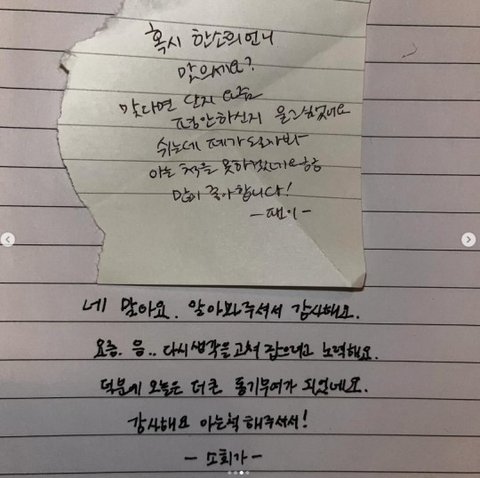 혹시 한소희언니
맞으세요?
맞다면 단지 요즘
평안하신지 묻고싶었어요
쉬는데 폐가 되올까봐
아는 척을 못하겠네요ㅎㅎ
많이 좋아합니다!
- 팬이 -
네 맞아요. 알아봐주셔서 감사해요.
요즘. 음.. 다시 생각을 고쳐 잡으려고 노력해요.
덕분에 오늘은 더 큰 동기부여가 되었네요.
감사해요 아는척 해주셔서!
- 소희가 -